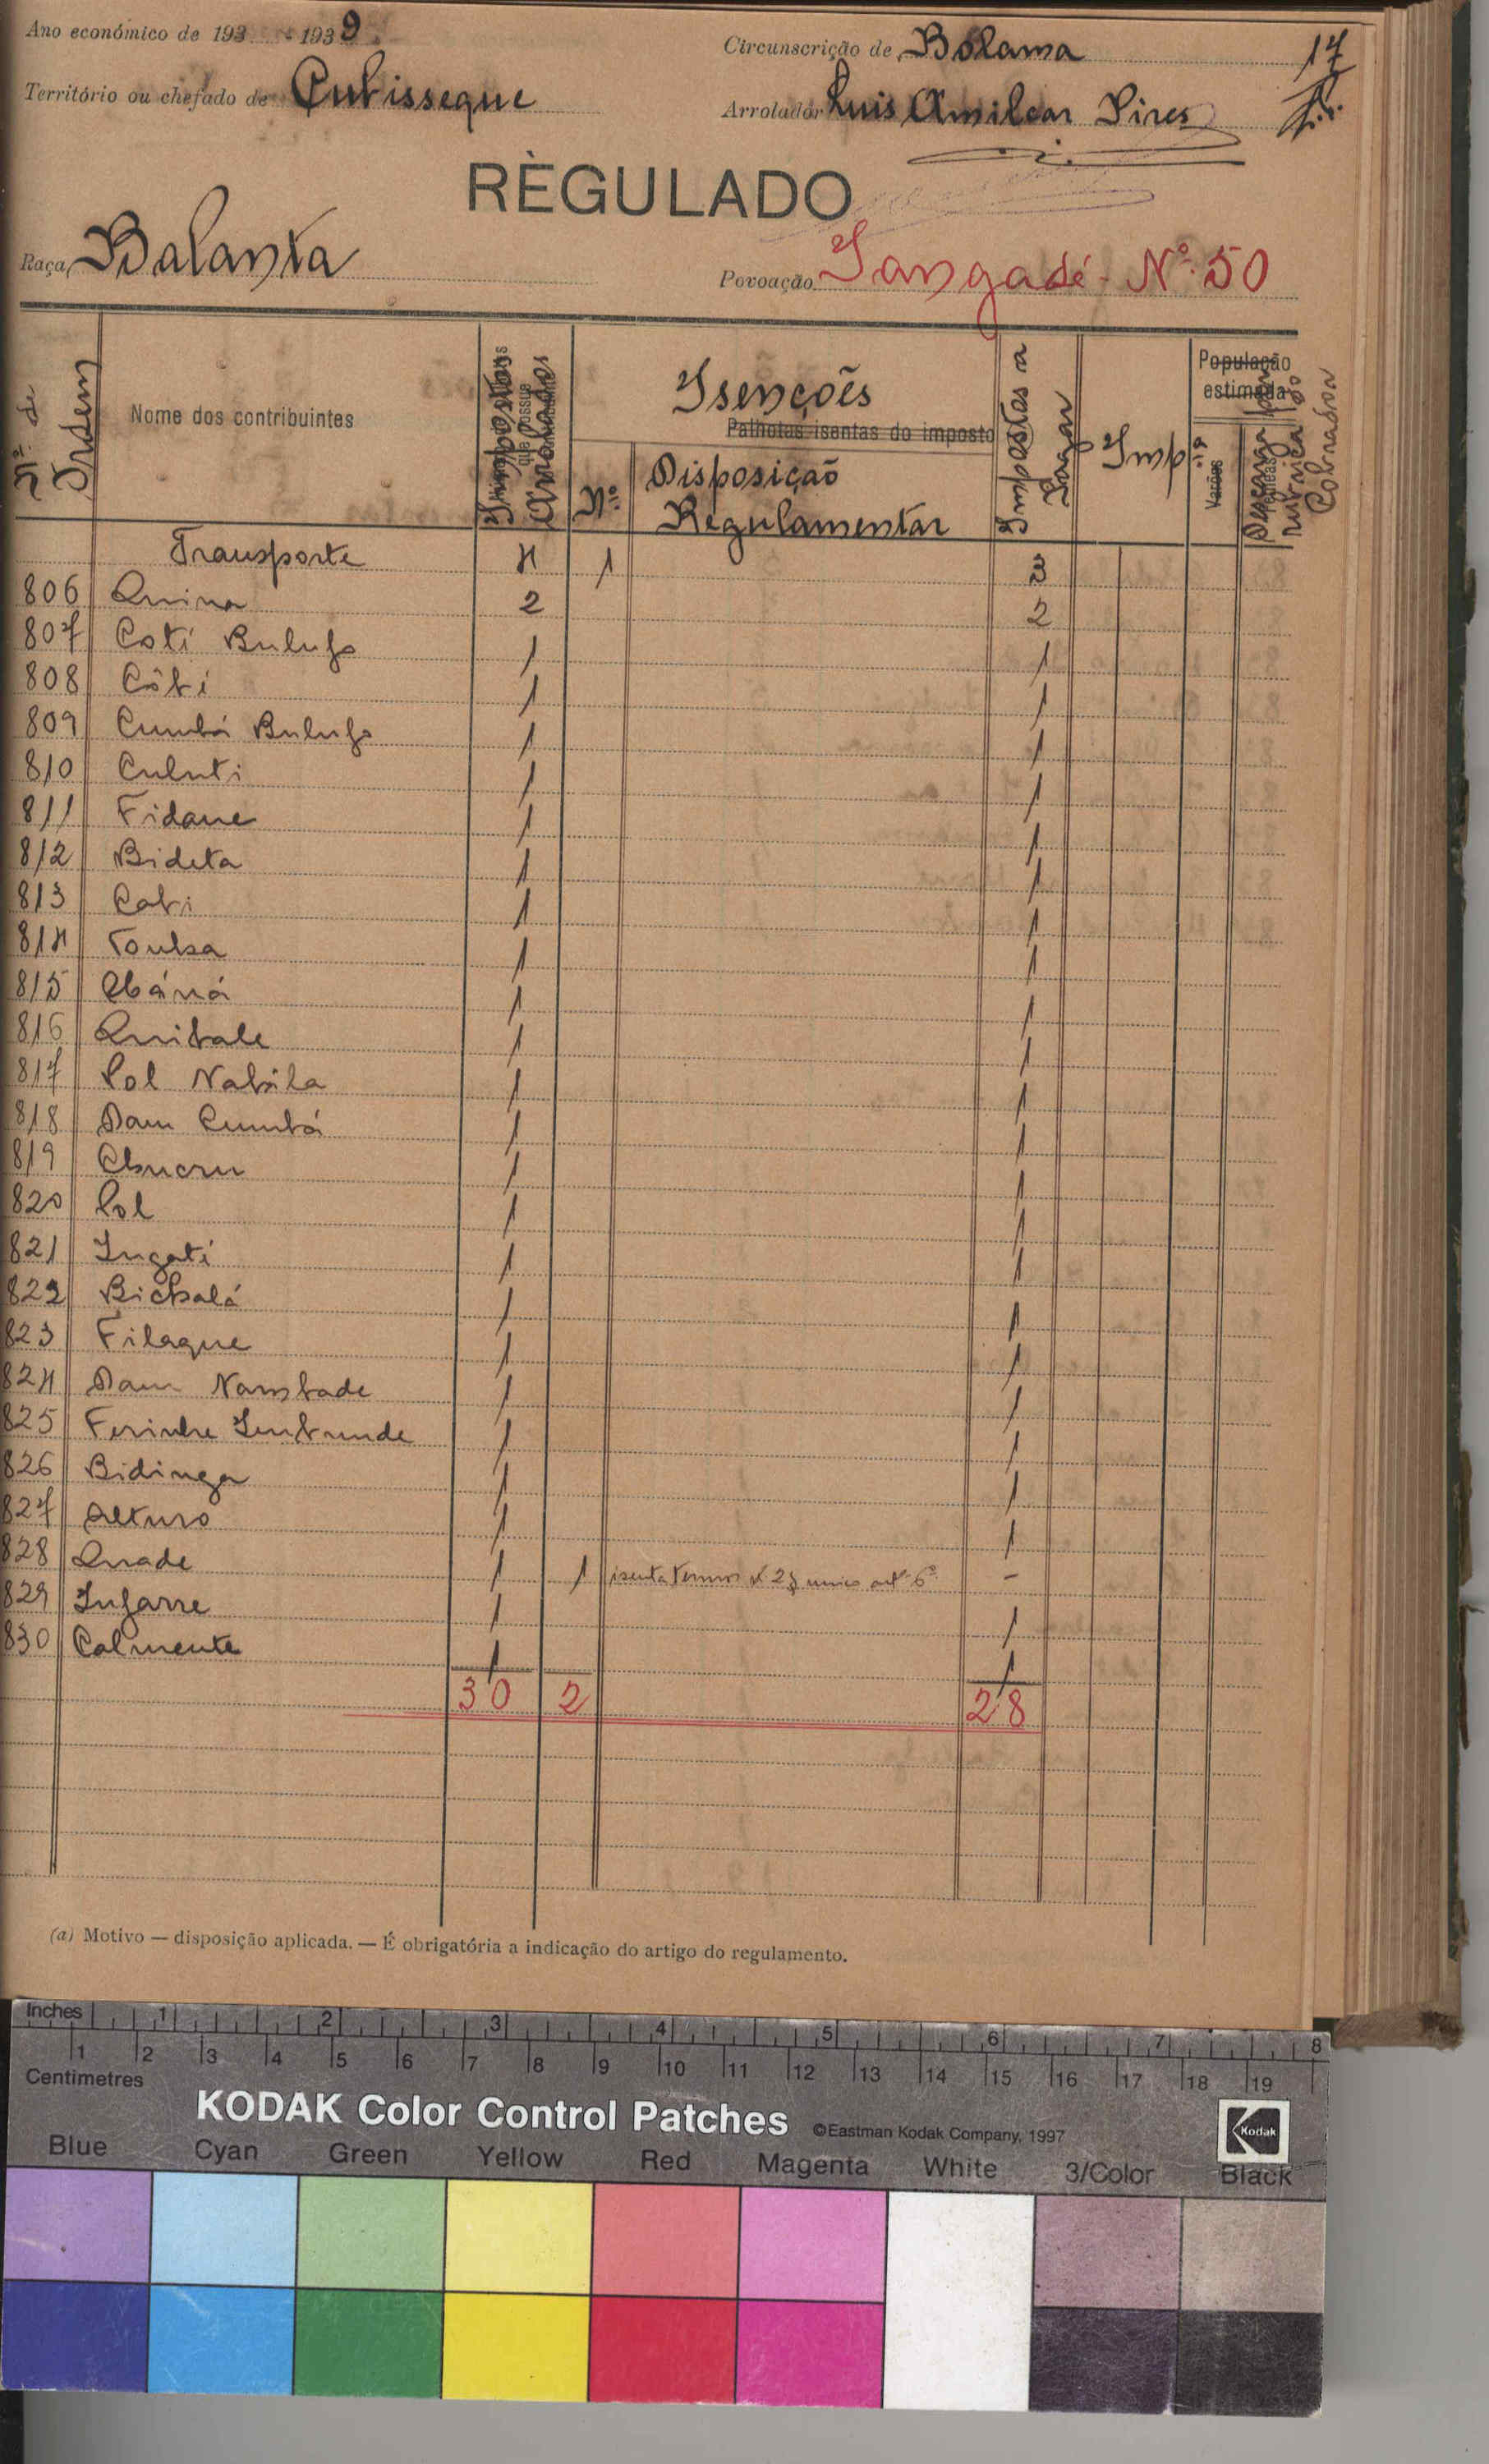 Ano económico de 193 - 1939.
Circunscrição de Bolama
17
Território ou chefado de Cubisseque
Arrolador Luis Amilcar Pires
REGULADO
Raça Balanta
Povoação Tangadé - Nº 50
Nº de Ordem
Nome dos contribuintes
Impostos Arrolados
Isenções
Palhotas isentas do imposto
Nº
Disposição Regulamentar
Impostos a Pagar
Imp
População estimada
Varões
Transporte 4 1 3
806 Quina 2 2
807 Coti Bulufo 1 1
808 Côbi 1 1
809 Cumbá Bulufo 1 1
810 Cubuti 1 1
811 Fidane 1 1
812 Bideta 1 1
813 Cabi 1 1
814 1 1
815 1 1
816 Quibale 1 1
817 Pol Nabila 1 1
818 Dam Cumbá 1 1
819 1 1
820 Pol 1 1
821 Ingati 1 1
822 Bichalá 1 1
823 Filaque 1 1
824 Dam Nambade 1 1
825 1 1
826 Bidinga 1 1
827 Arturo 1 1
828 Quade 1 1 -
829 Infarre 1 1
830 Calmente 1 1
30 2 28
(a) Motivo — disposição aplicada. — É obrigatória a indicação do artigo do regulamento.
Inches 1 2 3 4 5 6 7 8
1 2 3 4 5 6 7 8 9 10 11 12 13 14 15 16 17 18 19
Centimetres
KODAK Color Control Patches ©Eastman Kodak Company, 1997 Kodak
Blue Cyan Green Yellow Red Magenta White 3/Color Black